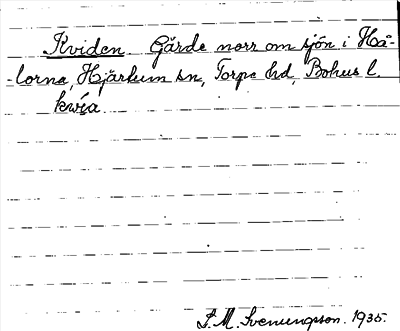 Kviden. Gärde norr om sjön i Hå-
-lorna, Hjärtum sn, Torpe hd, Bohus l.
S. M. Svenungsson. 1935.